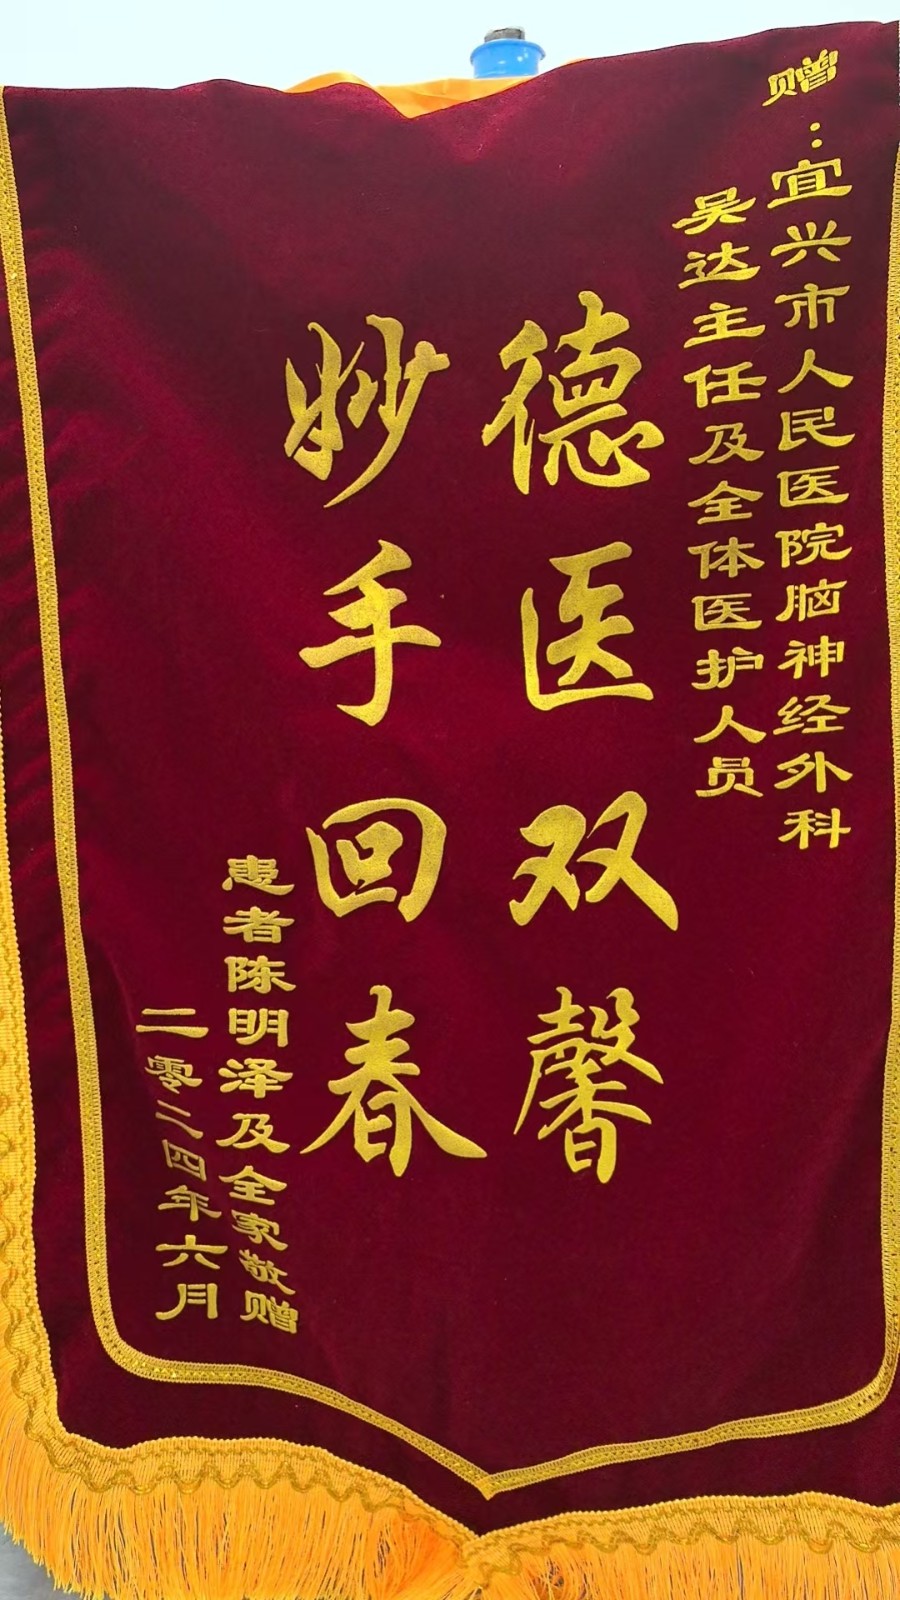 赠:宜兴市人民医院脑神经外科
吴达主任及全体医护人员
德医双馨
妙手回春
患者陈明泽及全家敬赠
二零二四年六月